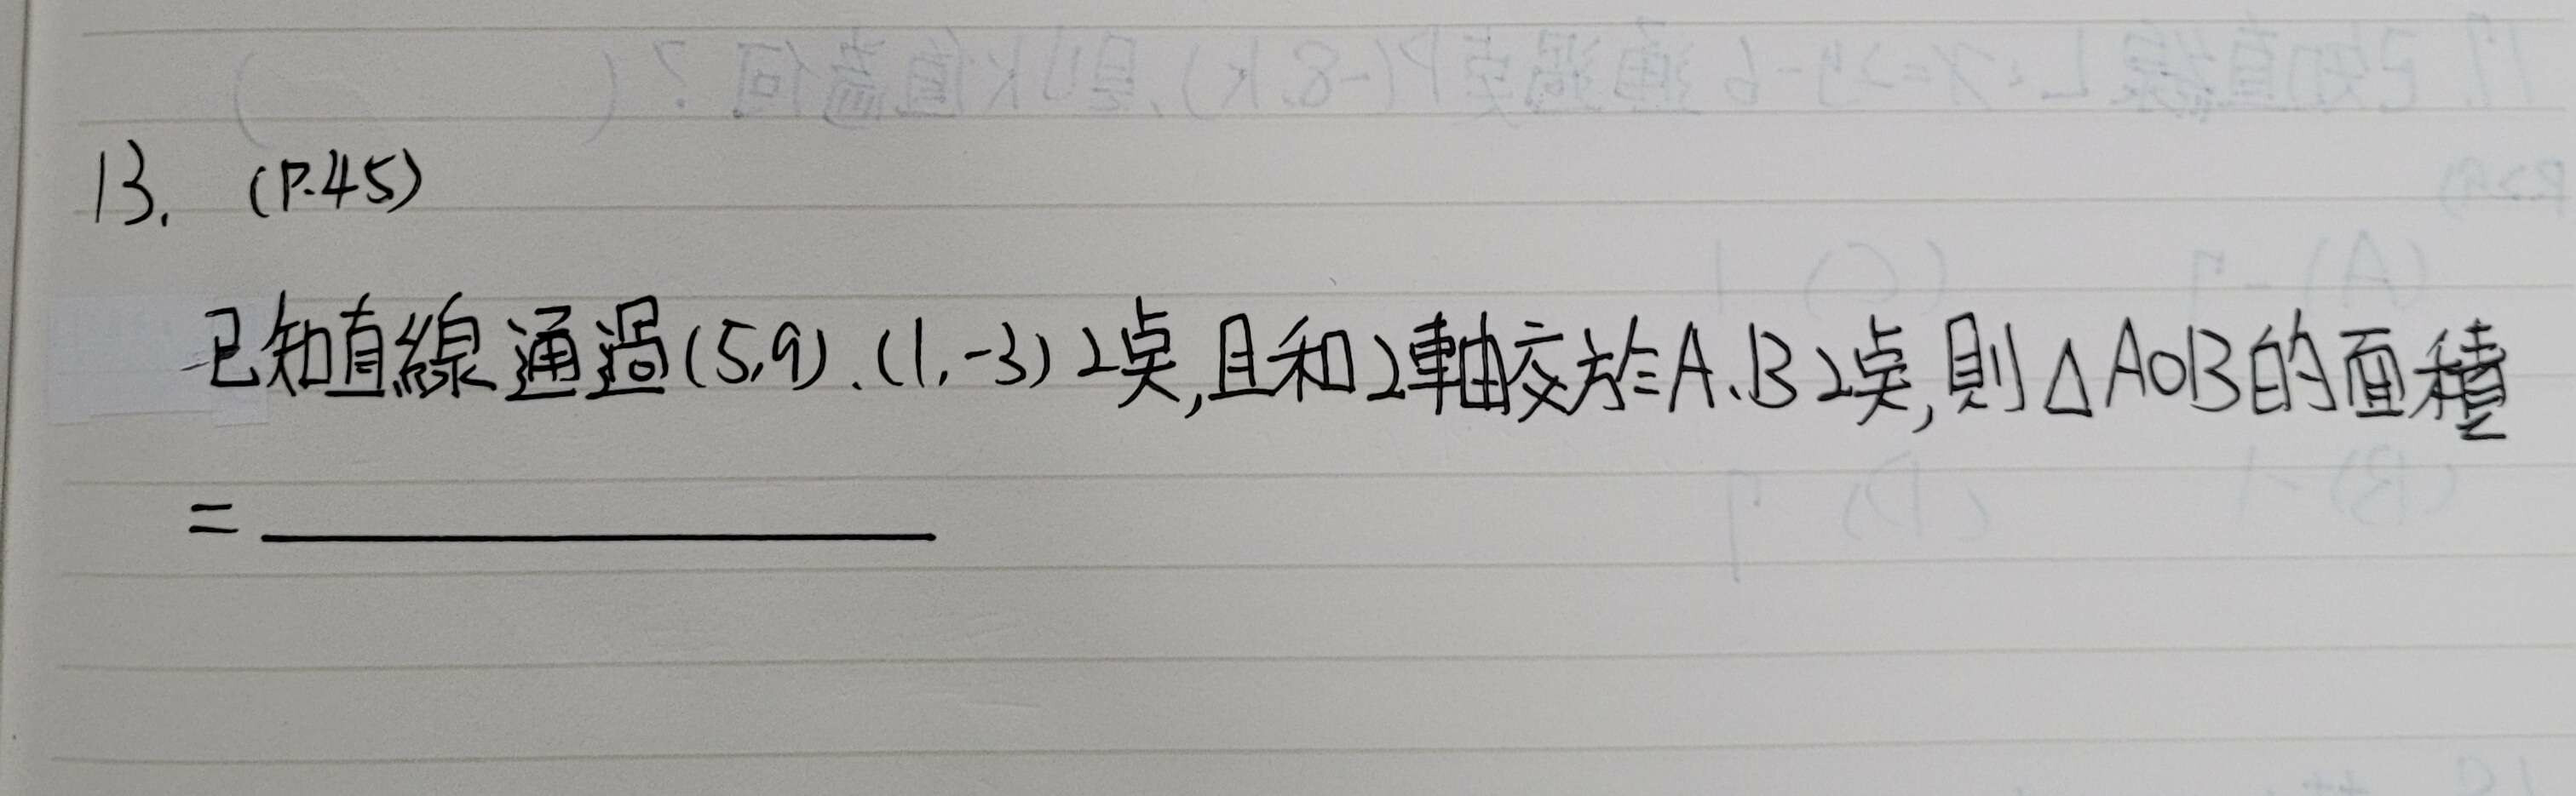 13. (P.45)
已知直線通過(5,9).(1,-3)2点,且和2軸交於A、B2点,則△AOB的面積
=